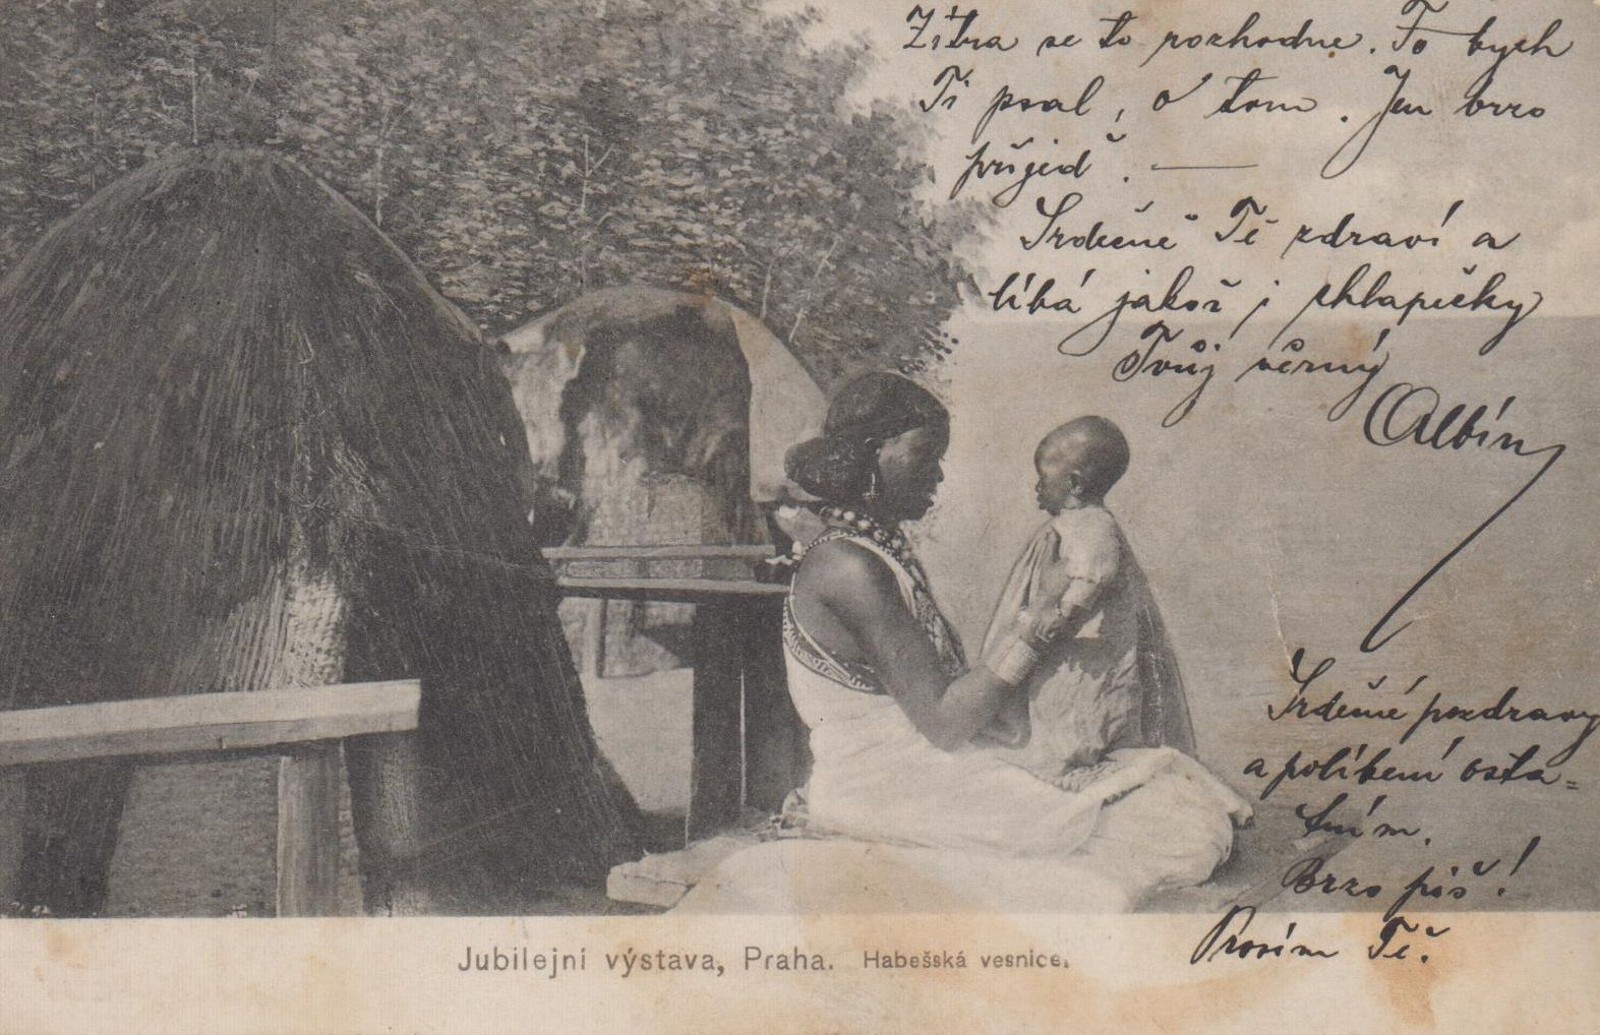 Zítra se to rozhodne. To bych
Ti psal, o tom. Jen brzo
přijeď. —
Srdečně Tě zdraví a
líbá jakož i chlapečky
Tvůj věrný
Albín
Srdečné pozdravy
a políbení osta=
tním.
Brzo piš!
Prosím Tě.
Jubilejní výstava, Praha. Habešská vesnice.